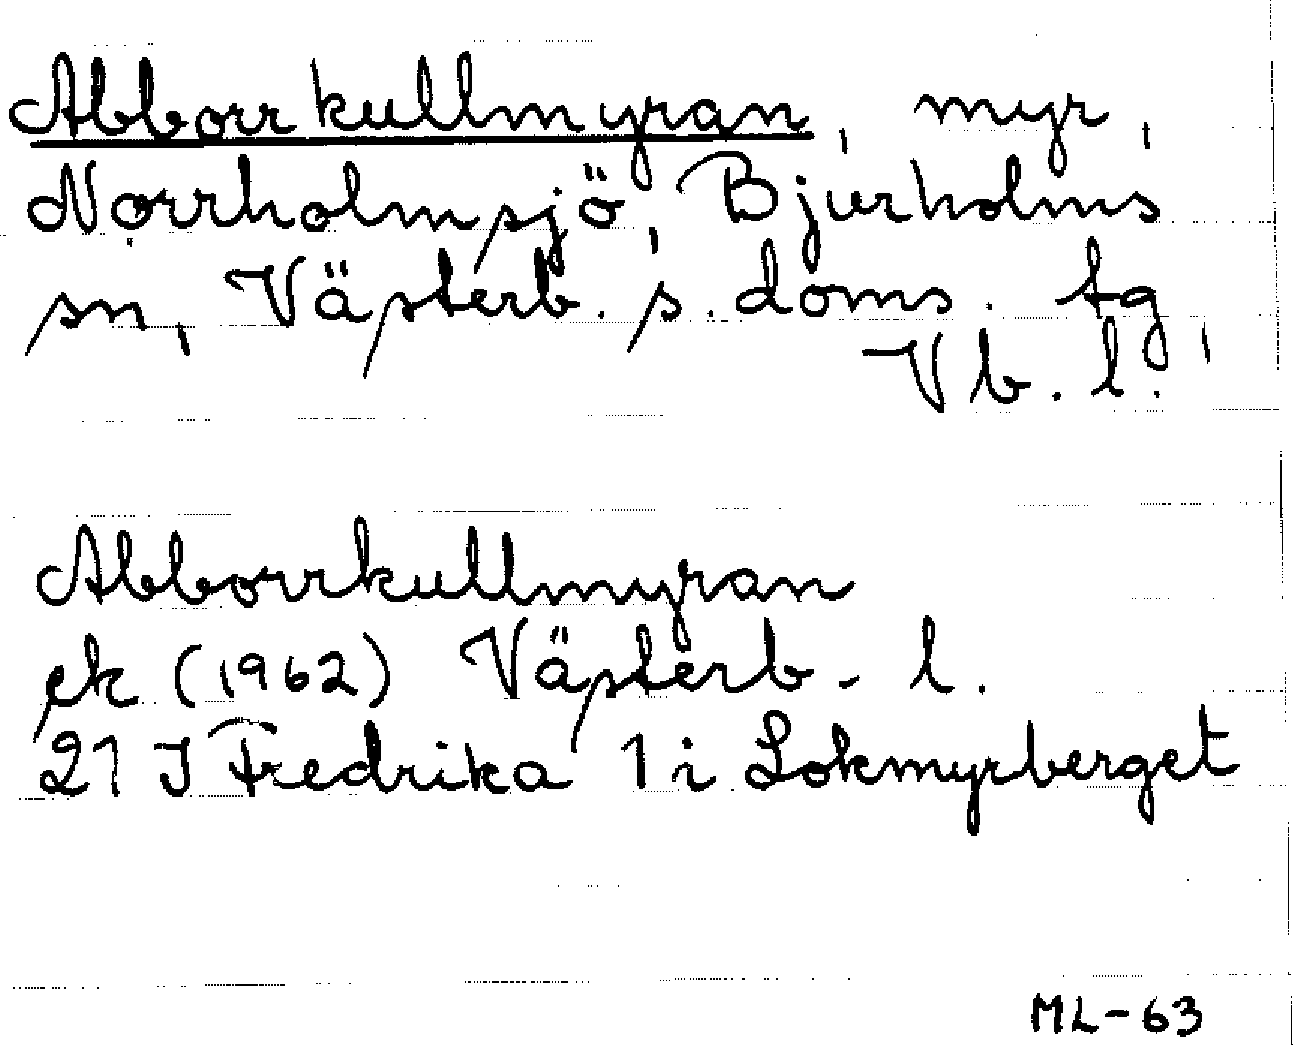 Abborrkullmyran, myr,
Norrholmsjö, Bjurholms
sn, Västerb. s. doms. tg,
Vb. l.
Abborrkullmyran
ek (1962) Västerb. l.
21 J Fredrika 1 i Lokmyrberget
ML-63